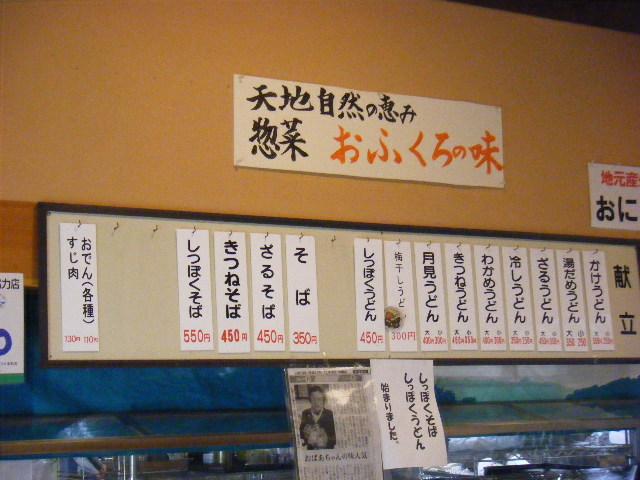 天地自然の恵み
惣菜 おふくろの味
地元産
おに
献立
かけうどん
湯だめうどん
大 小
350 250
ざるうどん
冷しうどん
わかめうどん
きつねうどん
大 小
月見うどん
大 小
梅干しうどん
300円
しっぽくうどん
450円
そば
350円
ざるそば
450円
きつねそば
450円
しっぽくそば
550円
おでん(各種)
すじ肉
110円
130円
しっぽくそば
しっぽくうどん
始まりました。
おばあちゃんの味人気